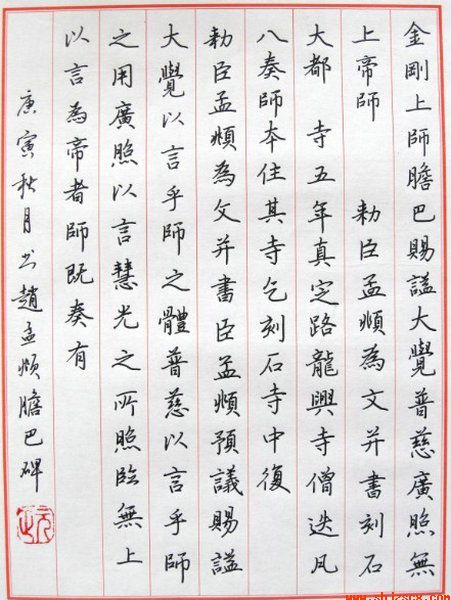 金剛上師膽巴賜謚大覺普慈廣照無
上帝師　勅臣孟頫為文并書刻石
大都　寺五年真定路龍興寺僧迭凡
八奏師本住其寺乞刻石寺中復
勅臣孟頫為文并書臣孟頫預議賜謚
大覺以言乎師之體普慈以言乎師
之用廣照以言慧光之所照臨無上
以言為帝者師既奏有
庚寅秋月书趙孟頫膽巴碑